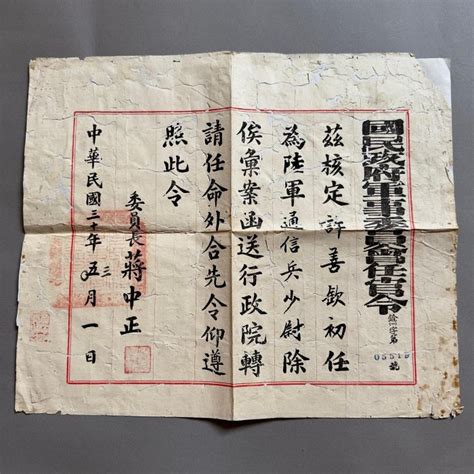 國民政府軍事委員會任官令
銓 字第05519號
茲核定許善欽初任
為陸軍通信兵少尉除
俟彙案函送行政院轉
請任命外合先令仰遵
照此令
委員長蔣中正
中華民國三十年三五月一日